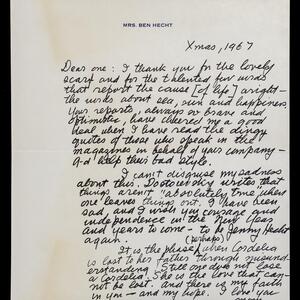 MRS. BEN HECHT
Xmas, 1967
Dear one: I thank you for the lovely
scarf and for the talented few words
that report the cause [of life] aright —
the words about sea, sun and happiness.
Your reports, always so brave and
optimistic, have cheered me a good
deal when I have read the dingy
quotes of those who speak in the
magazines in behalf of your company —
G-d help their bad style.
I can't disguise my sadness
about this. Dostoevsky writes that
things aren't absolutely true when
one leaves things out. I have been
sad, and I wish you courage and
independence in the New Year
and years to come — to be Jenny Hecht
again. (perhaps)
It is the phase, when Cordelia
is lost to her father through misund-
erstanding. Yet one does not lose
a Cordelia. She is the love that can-
not be lost. And there is my faith
in you — and my hope. I love you